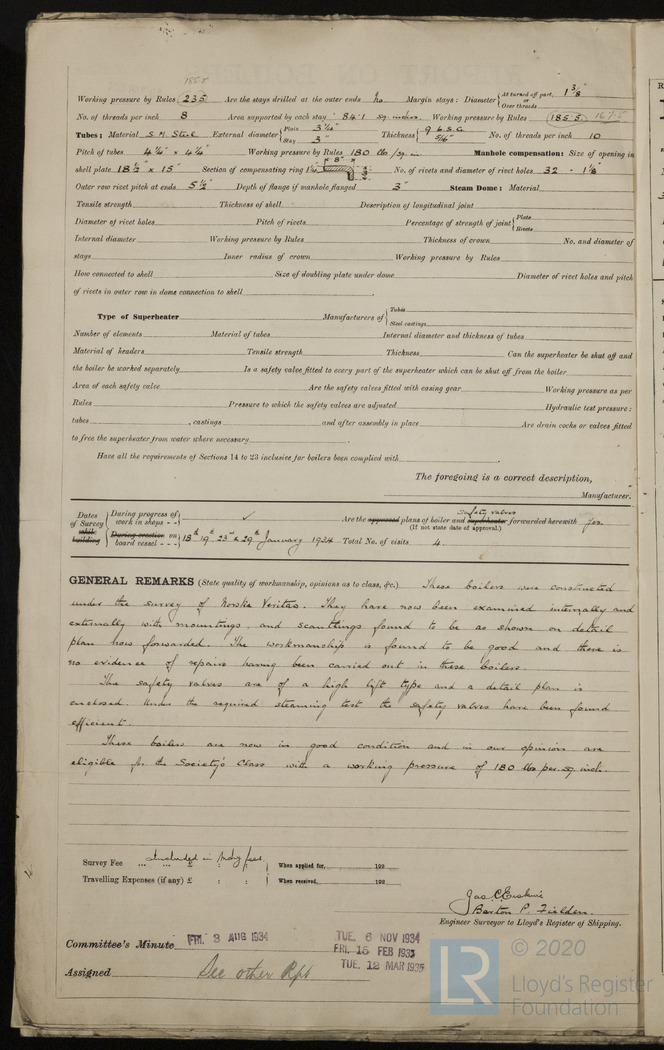 185.5
Working pressure by Rules 235 Are the stays drilled at the outer ends No Margin stays: Diameter { At turned off part, 1 3/8" or Over threads
No. of threads per inch 8 Area supported by each stay 84.1 sq. inches. Working pressure by Rules 185.5 167.5
Tubes: Material S.M Steel External diameter { Plain 3 1/4" Stay 3" Thickness { 9 L.S.G. 5/16" No. of threads per inch 10
Pitch of tubes 4 1/4" x 4 1/4" Working pressure by Rules 180 lbs/sq. in. Manhole compensation: Size of opening in
shell plate 18 1/2" x 15" Section of compensating ring 8" No. of rivets and diameter of rivet holes 32 - 1 1/8"
Outer row rivet pitch at ends 5 1/2" Depth of flange if manhole flanged 3" Steam Dome: Material
Tensile strength Thickness of shell Description of longitudinal joint
Diameter of rivet holes Pitch of rivets Percentage of strength of joint { Plate Rivets
Internal diameter Working pressure by Rules Thickness of crown No. and diameter of
stays Inner radius of crown Working pressure by Rules
How connected to shell Size of doubling plate under dome Diameter of rivet holes and pitch
of rivets in outer row in dome connection to shell
Type of Superheater Manufacturers of { Tubes Steel castings
Number of elements Material of tubes Internal diameter and thickness of tubes
Material of headers Tensile strength Thickness Can the superheater be shut off and
the boiler be worked separately Is a safety valve fitted to every part of the superheater which can be shut off from the boiler
Area of each safety valve Are the safety valves fitted with easing gear Working pressure as per
Rules Pressure to which the safety valves are adjusted Hydraulic test pressure:
tubes , castings and after assembly in place Are drain cocks or valves fitted
to free the superheater from water where necessary
Have all the requirements of Sections 14 to 23 inclusive for boilers been complied with
The foregoing is a correct description,
Manufacturer.
Dates of Survey while building { During progress of work in shops - - } ✓ Are the approved plans of boiler and superheater safety valves forwarded herewith Yes.
(If not state date of approval.)
{ During erection on board vessel - - - } 18th 19th 23rd & 29th January 1934 Total No. of visits 4.
GENERAL REMARKS (State quality of workmanship, opinions as to class, &c.) These boilers were constructed
under the survey of Norske Veritas. They have now been examined internally and
externally with mountings, and scantlings found to be as shown on detail
plan now forwarded. The workmanship is found to be good and there is
no evidence of repairs having been carried out in these boilers.
The safety valves are of a high lift type and a detail plan is
enclosed. Under the required steaming test the safety valves have been found
efficient.
These boilers are now in good condition and in our opinion are
eligible for the Society's Class with a working pressure of 180 lbs per sq. inch.
Survey Fee ... ... £ Included in Mchy fees. When applied for, 192
Travelling Expenses (if any) £ : : When received, 192
Jas. C. Erskine
Barton P. Fielden.
Engineer Surveyor to Lloyd's Register of Shipping.
Committee's Minute FRI. 3 AUG 1934 TUE. 6 NOV 1934
FRI. 15 FEB 1935
TUE. 12 MAR 1935
Assigned See other Rpt
LR © 2020
Lloyd's Register
Foundation